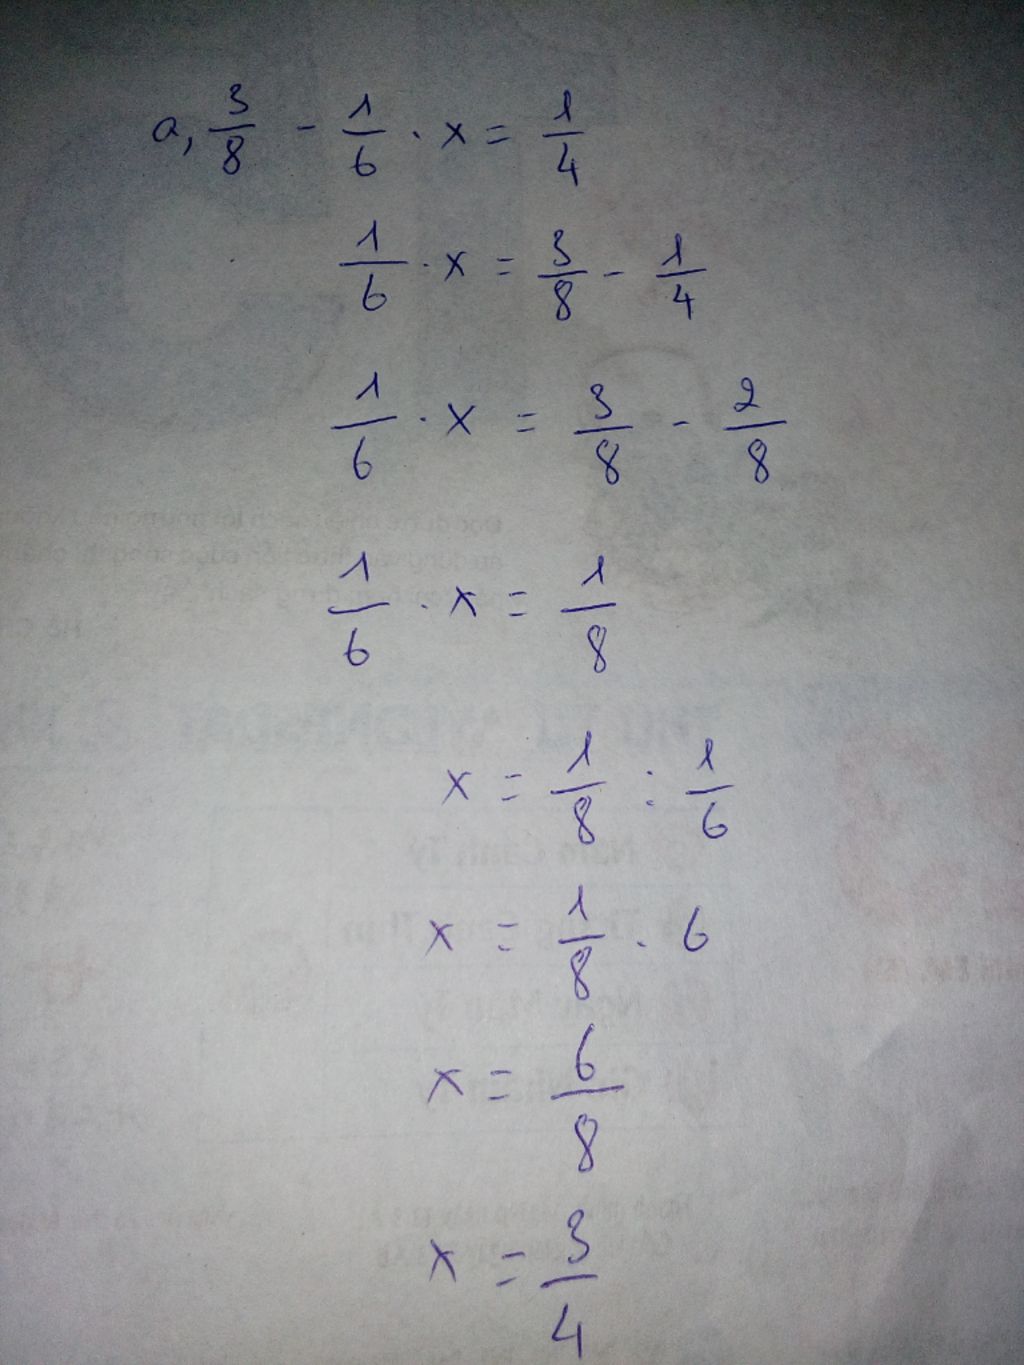 a, 3/8 - 1/6 . x = 1/4
1/6 . x = 3/8 - 1/4
1/6 . x = 3/8 - 2/8
1/6 . x = 1/8
x = 1/8 : 1/6
x = 1/8 . 6
x = 6/8
x = 3/4